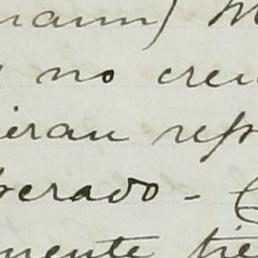 mann) M
no creu
ieran resp
perado -
mente tie